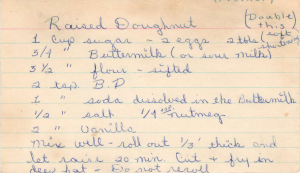 Raised Doughnut
(Double this)
1 Cup sugar - 2 eggs 2 tbls (soft shortening)
3/4 " Buttermilk (or sour milk)
3 1/2 " flour - sifted
2 tsp. B.P
1 " soda dissolved in the Buttermilk
1/2 " salt 1/4 tsp nutmeg
2 " Vanilla
Mix well - roll out 1/3" thick and
let raise 20 min. Cut & fry in
deep hat - Do not reroll